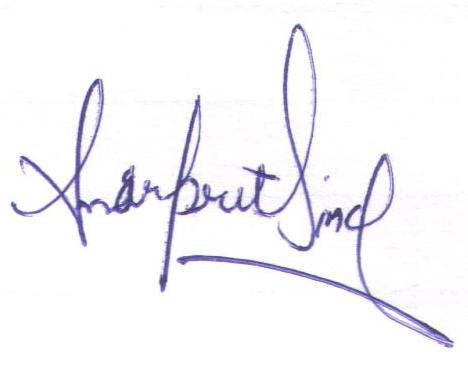 Amarpreet Sing